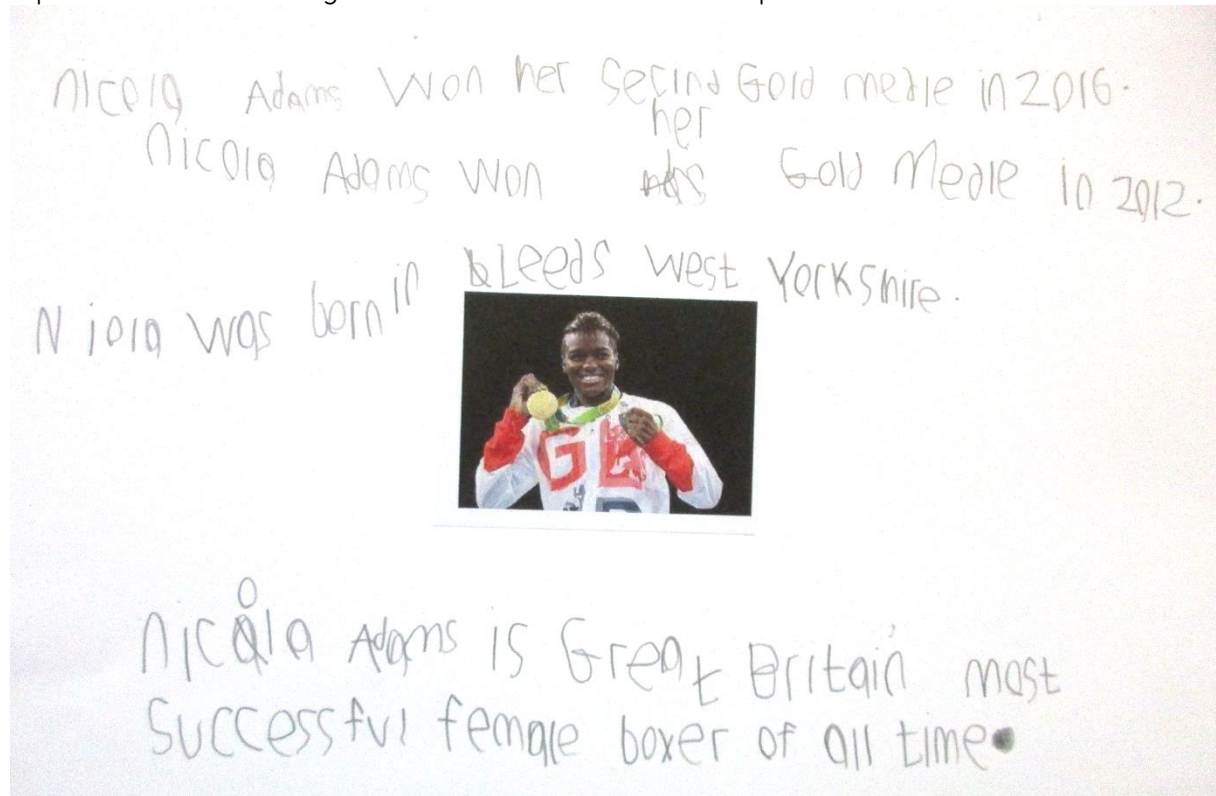 Nicola Adams Won her Secind Gold medle in 2016.
her
Nicola Adams Won Gold Medle in 2012.
Niola was born in Leeds West Yorkshire.
G B
Nicola Adams is Great Britain most
Successful female boxer of all time.